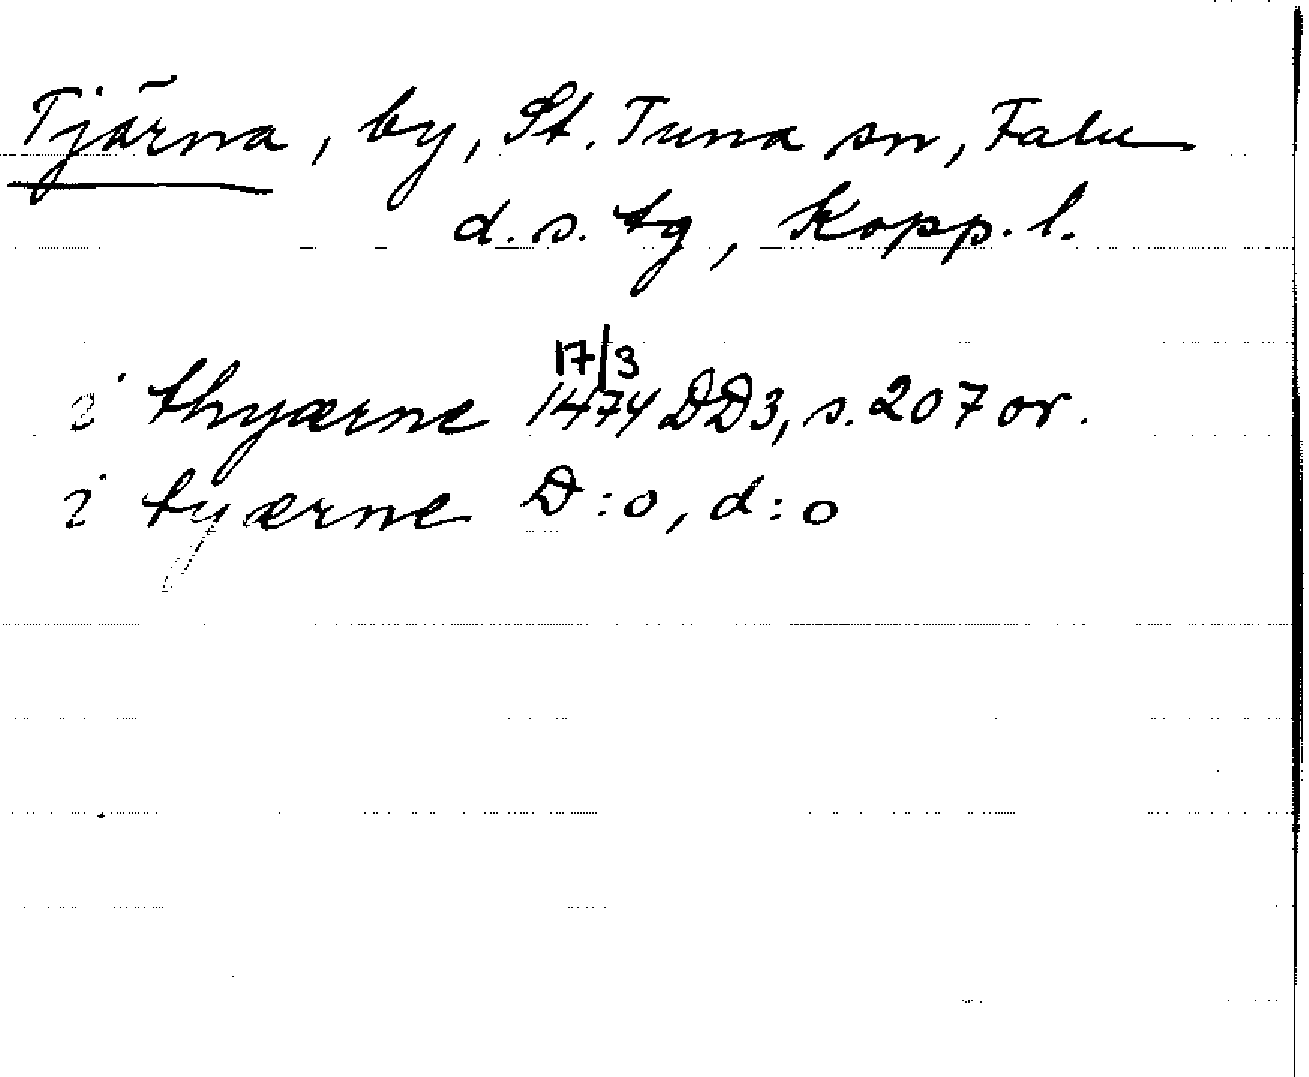 Tjärna, by, St. Tuna sn, Falu
d. s. tg, Kopp. l.
17/3
i thyærne 1474 DD3, s. 207 or.
i tyærne D:o, d:o